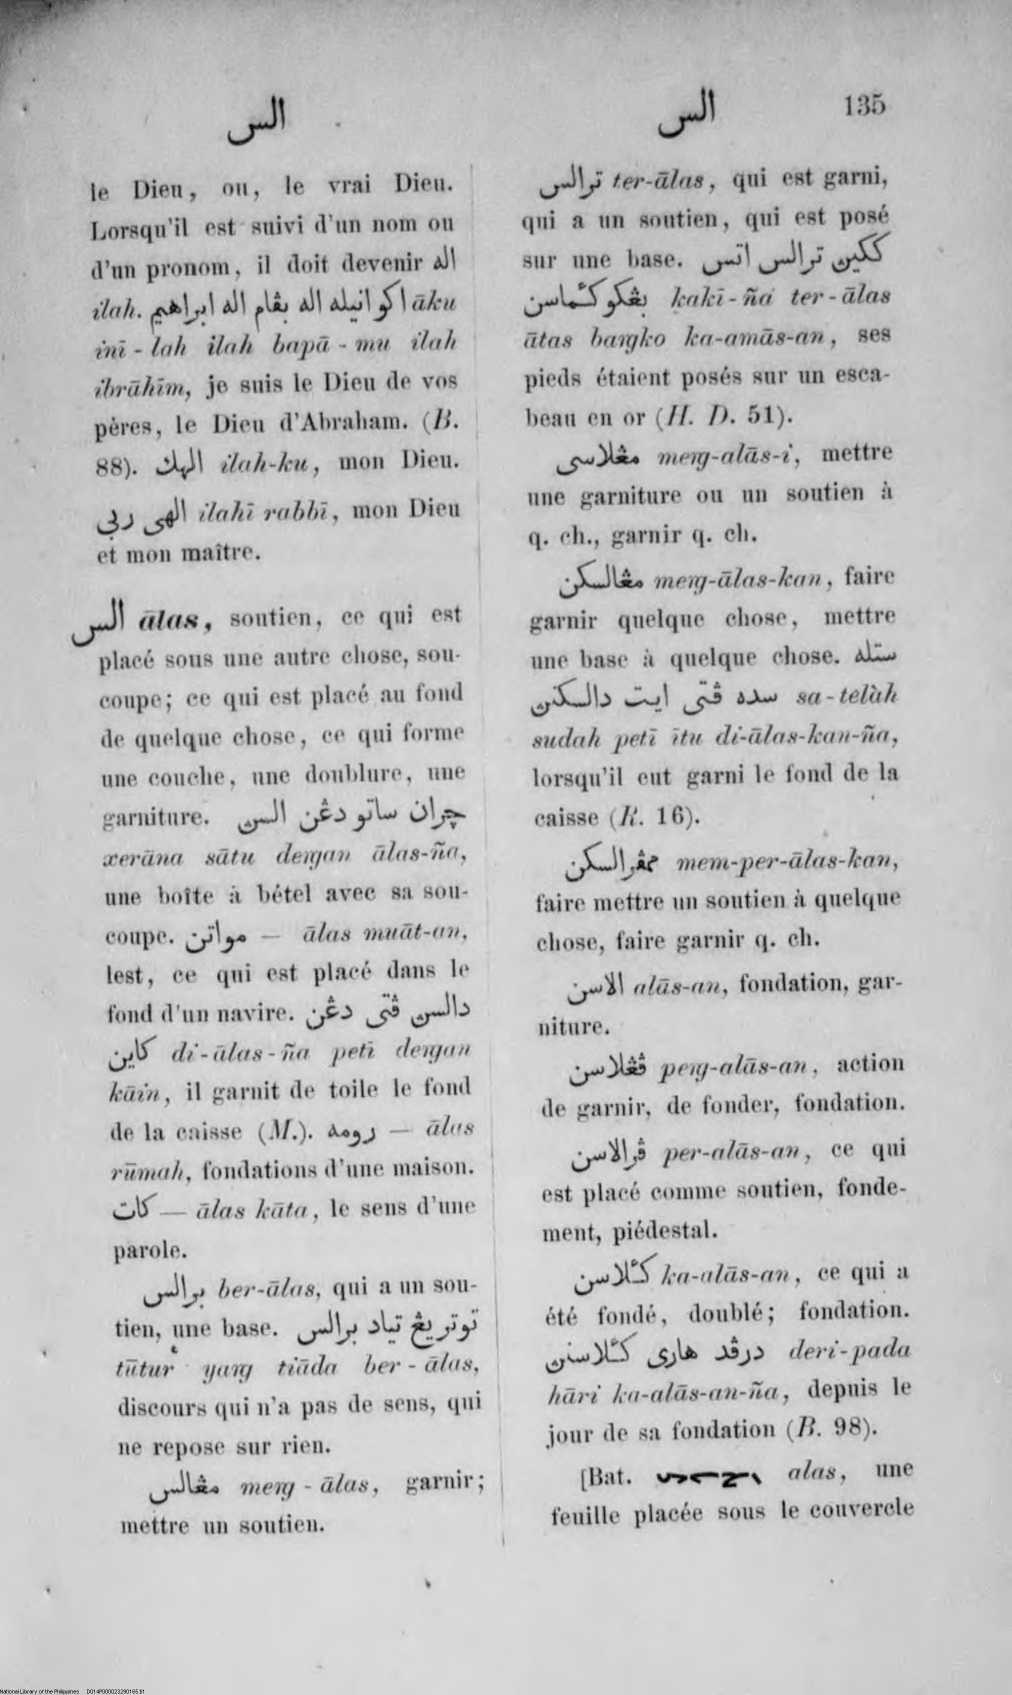 الس
الس
135
le Dieu, ou, le vrai Dieu.
Lorsqu'il est suivi d'un nom ou
d'un pronom, il doit devenir اله
ilah. اكو انيله اله بڤام اله ابراهيم āku
inī-lah ilah bapā-mu ilah
ibrāhīm, je suis le Dieu de vos
pères, le Dieu d'Abraham. (B.
88). الهك ilah-ku, mon Dieu.
الهى ربى ilahī rabbī, mon Dieu
et mon maître.
الس ālas, soutien, ce qui est
placé sous une autre chose, sou-
coupe; ce qui est placé au fond
de quelque chose, ce qui forme
une couche, une doublure, une
garniture. چران ساتو دڠن السن
xerāna sātu deṅgan ālas-ña,
une boîte à bétel avec sa sou-
coupe. مواتن — ālas muāt-an,
lest, ce qui est placé dans le
fond d'un navire. دالسن ڤتى دڠن
كاين di-ālas-ña petī deṅgan
kāin, il garnit de toile le fond
de la caisse (M.). رومه — ālas
rūmah, fondations d'une maison.
كات — ālas kāta, le sens d'une
parole.
برالس ber-ālas, qui a un sou-
tien, une base. توتر يڠ تياد برالس
tūtur yaṅg tiāda ber-ālas,
discours qui n'a pas de sens, qui
ne repose sur rien.
مڠالس meṅg-ālas, garnir;
mettre un soutien.
ترالس ter-ālas, qui est garni,
qui a un soutien, qui est posé
sur une base. ككين ترالس اتس
بڠكو كئماسن kakī-ña ter-ālas
ātas baṅgko ka-amās-an, ses
pieds étaient posés sur un esca-
beau en or (H. D. 51).
مڠلاسى meṅg-alās-i, mettre
une garniture ou un soutien à
q. ch., garnir q. ch.
مڠالسكن meṅg-ālas-kan, faire
garnir quelque chose, mettre
une base à quelque chose. ستله
سده ڤتى ايت دالسكنن sa-telàh
sudah petī ītu di-ālas-kan-ña,
lorsqu'il eut garni le fond de la
caisse (R. 16).
ممڤرالسكن mem-per-ālas-kan,
faire mettre un soutien à quelque
chose, faire garnir q. ch.
الاسن alās-an, fondation, gar-
niture.
ڤڠلاسن peṅg-alās-an, action
de garnir, de fonder, fondation.
ڤرالاسن per-alās-an, ce qui
est placé comme soutien, fonde-
ment, piédestal.
كئلاسن ka-alās-an, ce qui a
été fondé, doublé; fondation.
درڤد هارى كئلاسنن deri-pada
hāri ka-alās-an-ña, depuis le
jour de sa fondation (B. 98).
[Bat. alas, une
feuille placée sous le couvercle
National Library of the Philippines